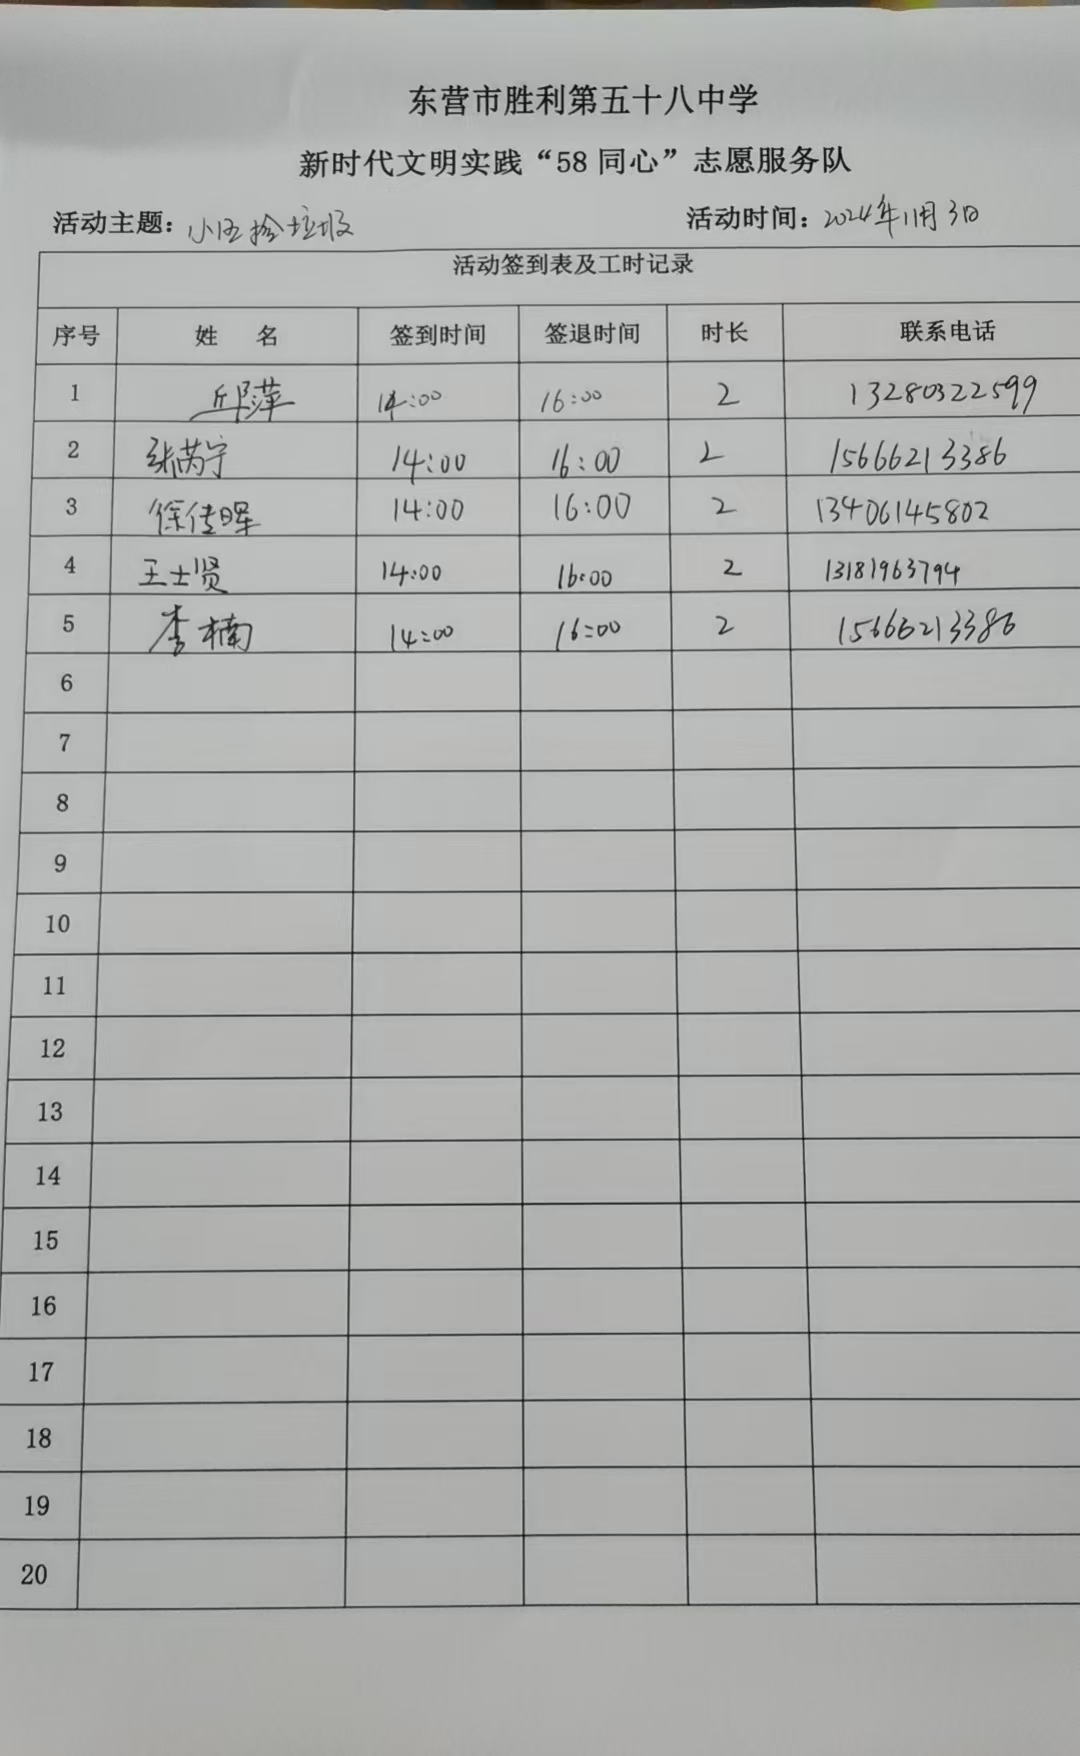 东营市胜利第五十八中学
新时代文明实践“58 同心”志愿服务队
活动主题：小区捡垃圾 活动时间：2024年11月3日
活动签到表及工时记录
序号 姓 名 签到时间 签退时间 时长 联系电话
1 邱萍 14:00 16:00 2 13280322599
2 张芮宁 14:00 16:00 2 15666213386
3 徐佳晖 14:00 16:00 2 13406145802
4 王士贤 14:00 16:00 2 13181963794
5 李楠 14:00 16:00 2 15666213386
6
7
8
9
10
11
12
13
14
15
16
17
18
19
20